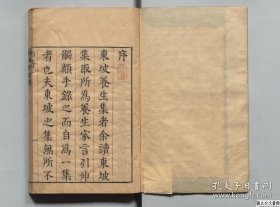 序
東坡養生集者余讀東坡
集取所爲養生家言引伸
觸類手錄之而自爲一集
者也夫東坡之集無所不
孔夫子旧书网